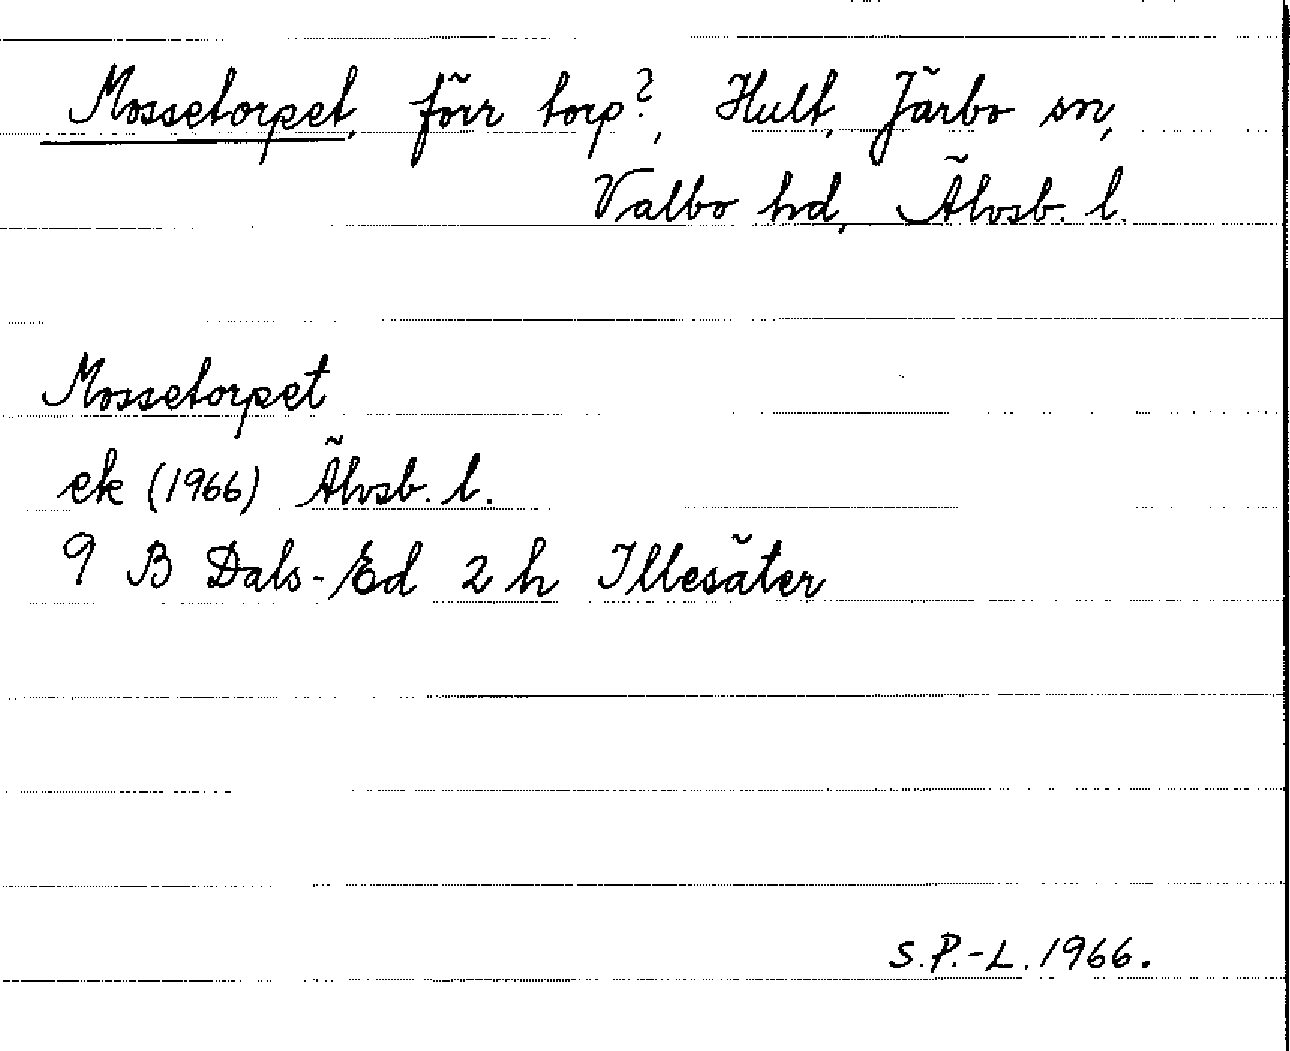 Mossetorpet, förr torp?, Hult, Järbo sn,
Valbo hd, Älvsb. l.
Mossetorpet
ek (1966) Älvsb. l.
9 B Dals-Ed 2 h Illesäter
S.P.-L. 1966.